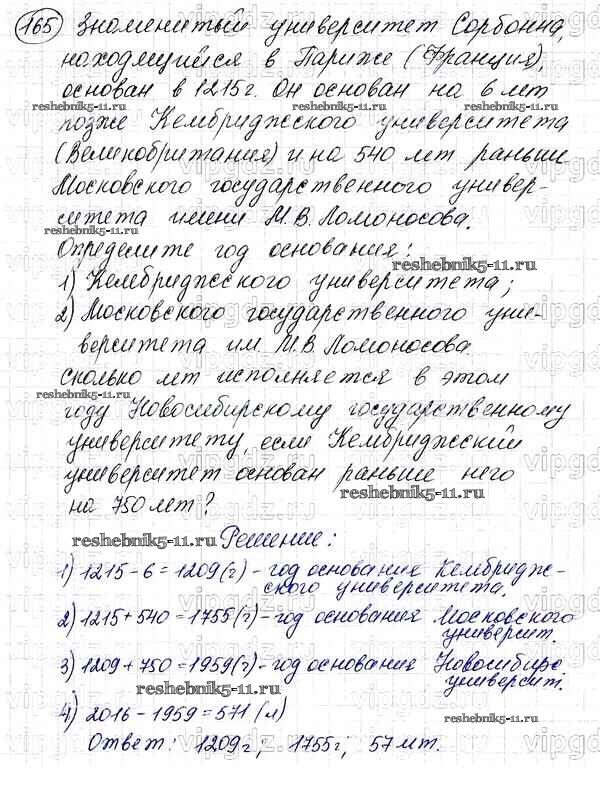 165 Знаменитый университет Сорбонна,
находящийся в Париже (Франция),
основан в 1215 г. Он основан на 6 лет
reshebnik5-11.ru reshebnik5-11.ru reshebnik5-11.ru
позже Кембриджского университета
(Великобритания) и на 540 лет раньше
Московского государственного универ-
ситета имени М.В. Ломоносова.
reshebnik5-11.ru
Определите год основания:
reshebnik5-11.ru
1) Кембриджского университета;
2) Московского государственного уни-
верситета им. М.В. Ломоносова.
Сколько лет исполняется в этом
reshebnik5-11.ru
году Новосибирскому государственному
университету, если Кембриджский
университет основан раньше него
reshebnik5-11.ru
на 750 лет?
Решение:
reshebnik5-11.ru
1) 1215-6=1209(г)-год основания Кембридж-
ского университета.
2) 1215+540=1755(г)-год основания Московского
университ.
3) 1209+750=1959(г)-год основания Новосибирс
университ.
reshebnik5-11.ru
4) 2016-1959=571 (л)
reshebnik5-11.ru
Ответ: 1209г; 1755г; 57 лт.
vipgdz.ru